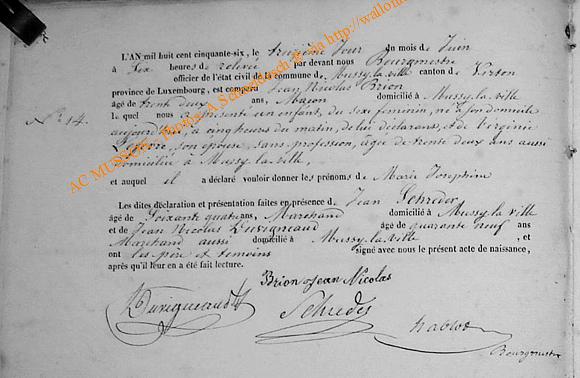 L'AN mil huit cent cinquante-six, le treizième Jour du mois de Juin
à Six heures de relevée par devant nous Bourgmestre
officier de l'état civil de la commune de Mussy-la-ville canton de Virton
province de Luxembourg, est comparu Jean Nicolas Brion
âgé de trente deux ans, Maçon domicilié à Mussy-la-ville
N° 14. le quel nous a présenté un enfant, du sexe feminin, né à son domicile
aujourd'hui, à cinq heures du matin, de lui déclarant, et de Virginie
Lefèvre, son épouse, sans profession, âgée de trente deux ans aussi
domiciliée à Mussy-la-ville,
et auquel il a déclaré vouloir donner les prénoms de Marie Josephine
Les dites déclaration et présentation faites en présence de Jean Schreder
âgé de Soixante quatre ans, Marchand domicilié à Mussy la ville
et de Jean Nicolas Duvigneaud âgé de quarante neuf ans,
Marchand aussi domicilié à Mussy-la-ville, et
ont les père et témoins signé avec nous le présent acte de naissance,
après qu'il leur en a été fait lecture.
Brion Jean Nicolas
Duvigneaud
Schreder
Bourgmestre
AC MUSSON - Photos A Schellenbach & via http://wallon